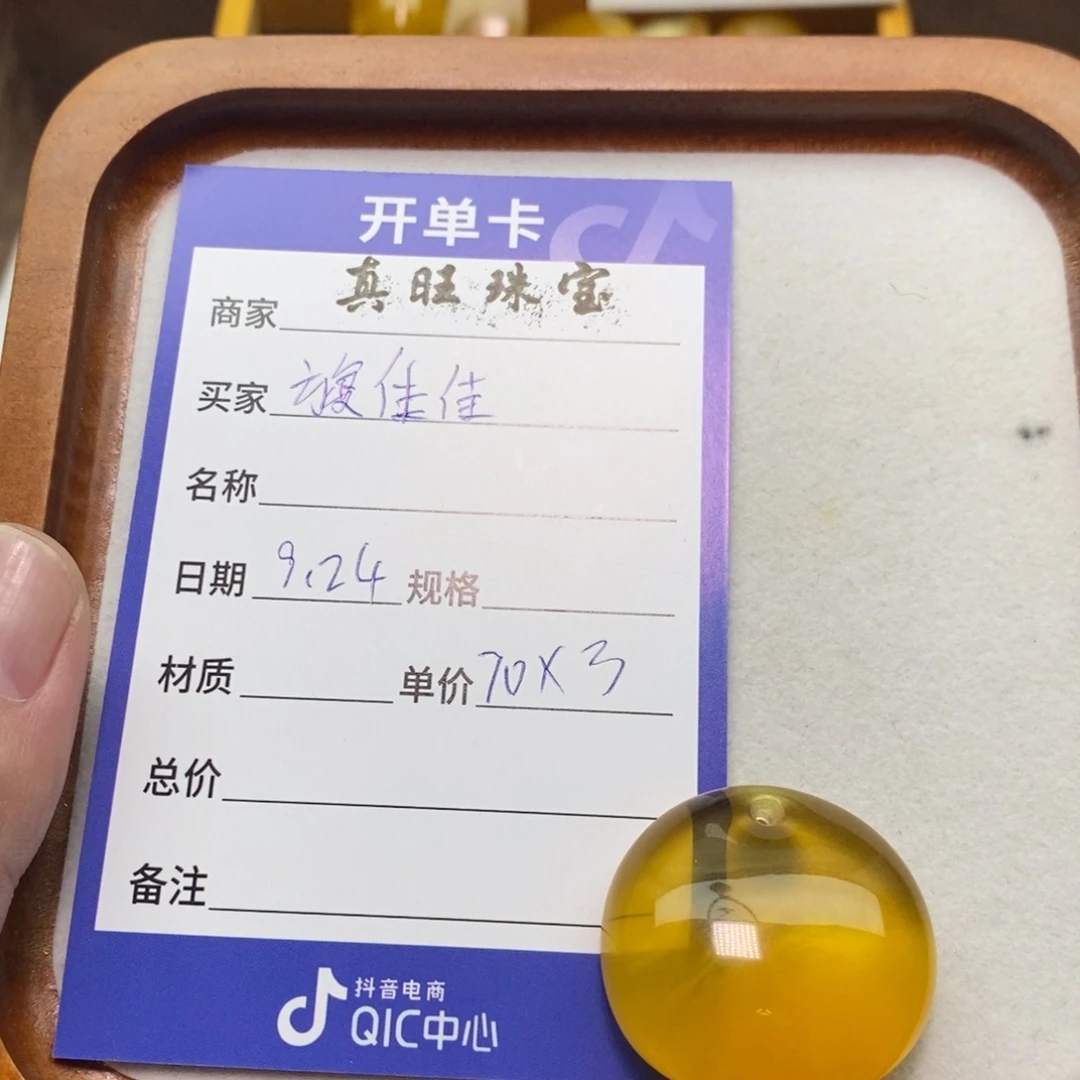 开单卡
商家 真旺珠宝
买家 佳佳
名称
日期 9.24 规格
材质 单价 70X3
总价
备注
抖音电商
QIC中心